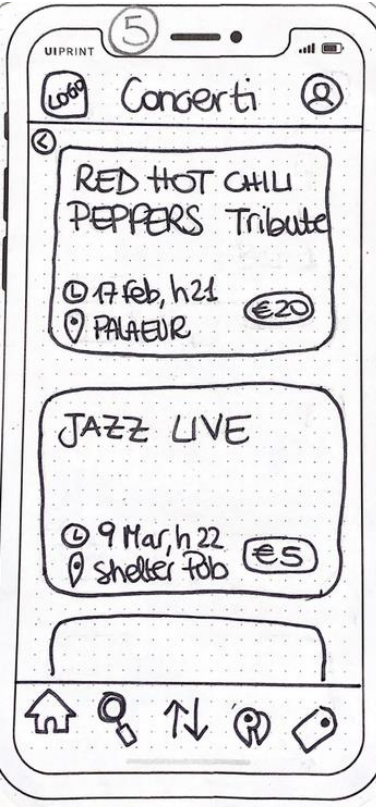 5
UIPRINT
LOGO Concerti
RED HOT CHILI
PEPPERS Tribute
17 Feb, h21
€20
PALAEUR
JAZZ LIVE
9 Mar, h 22
€5
Shelter Pub